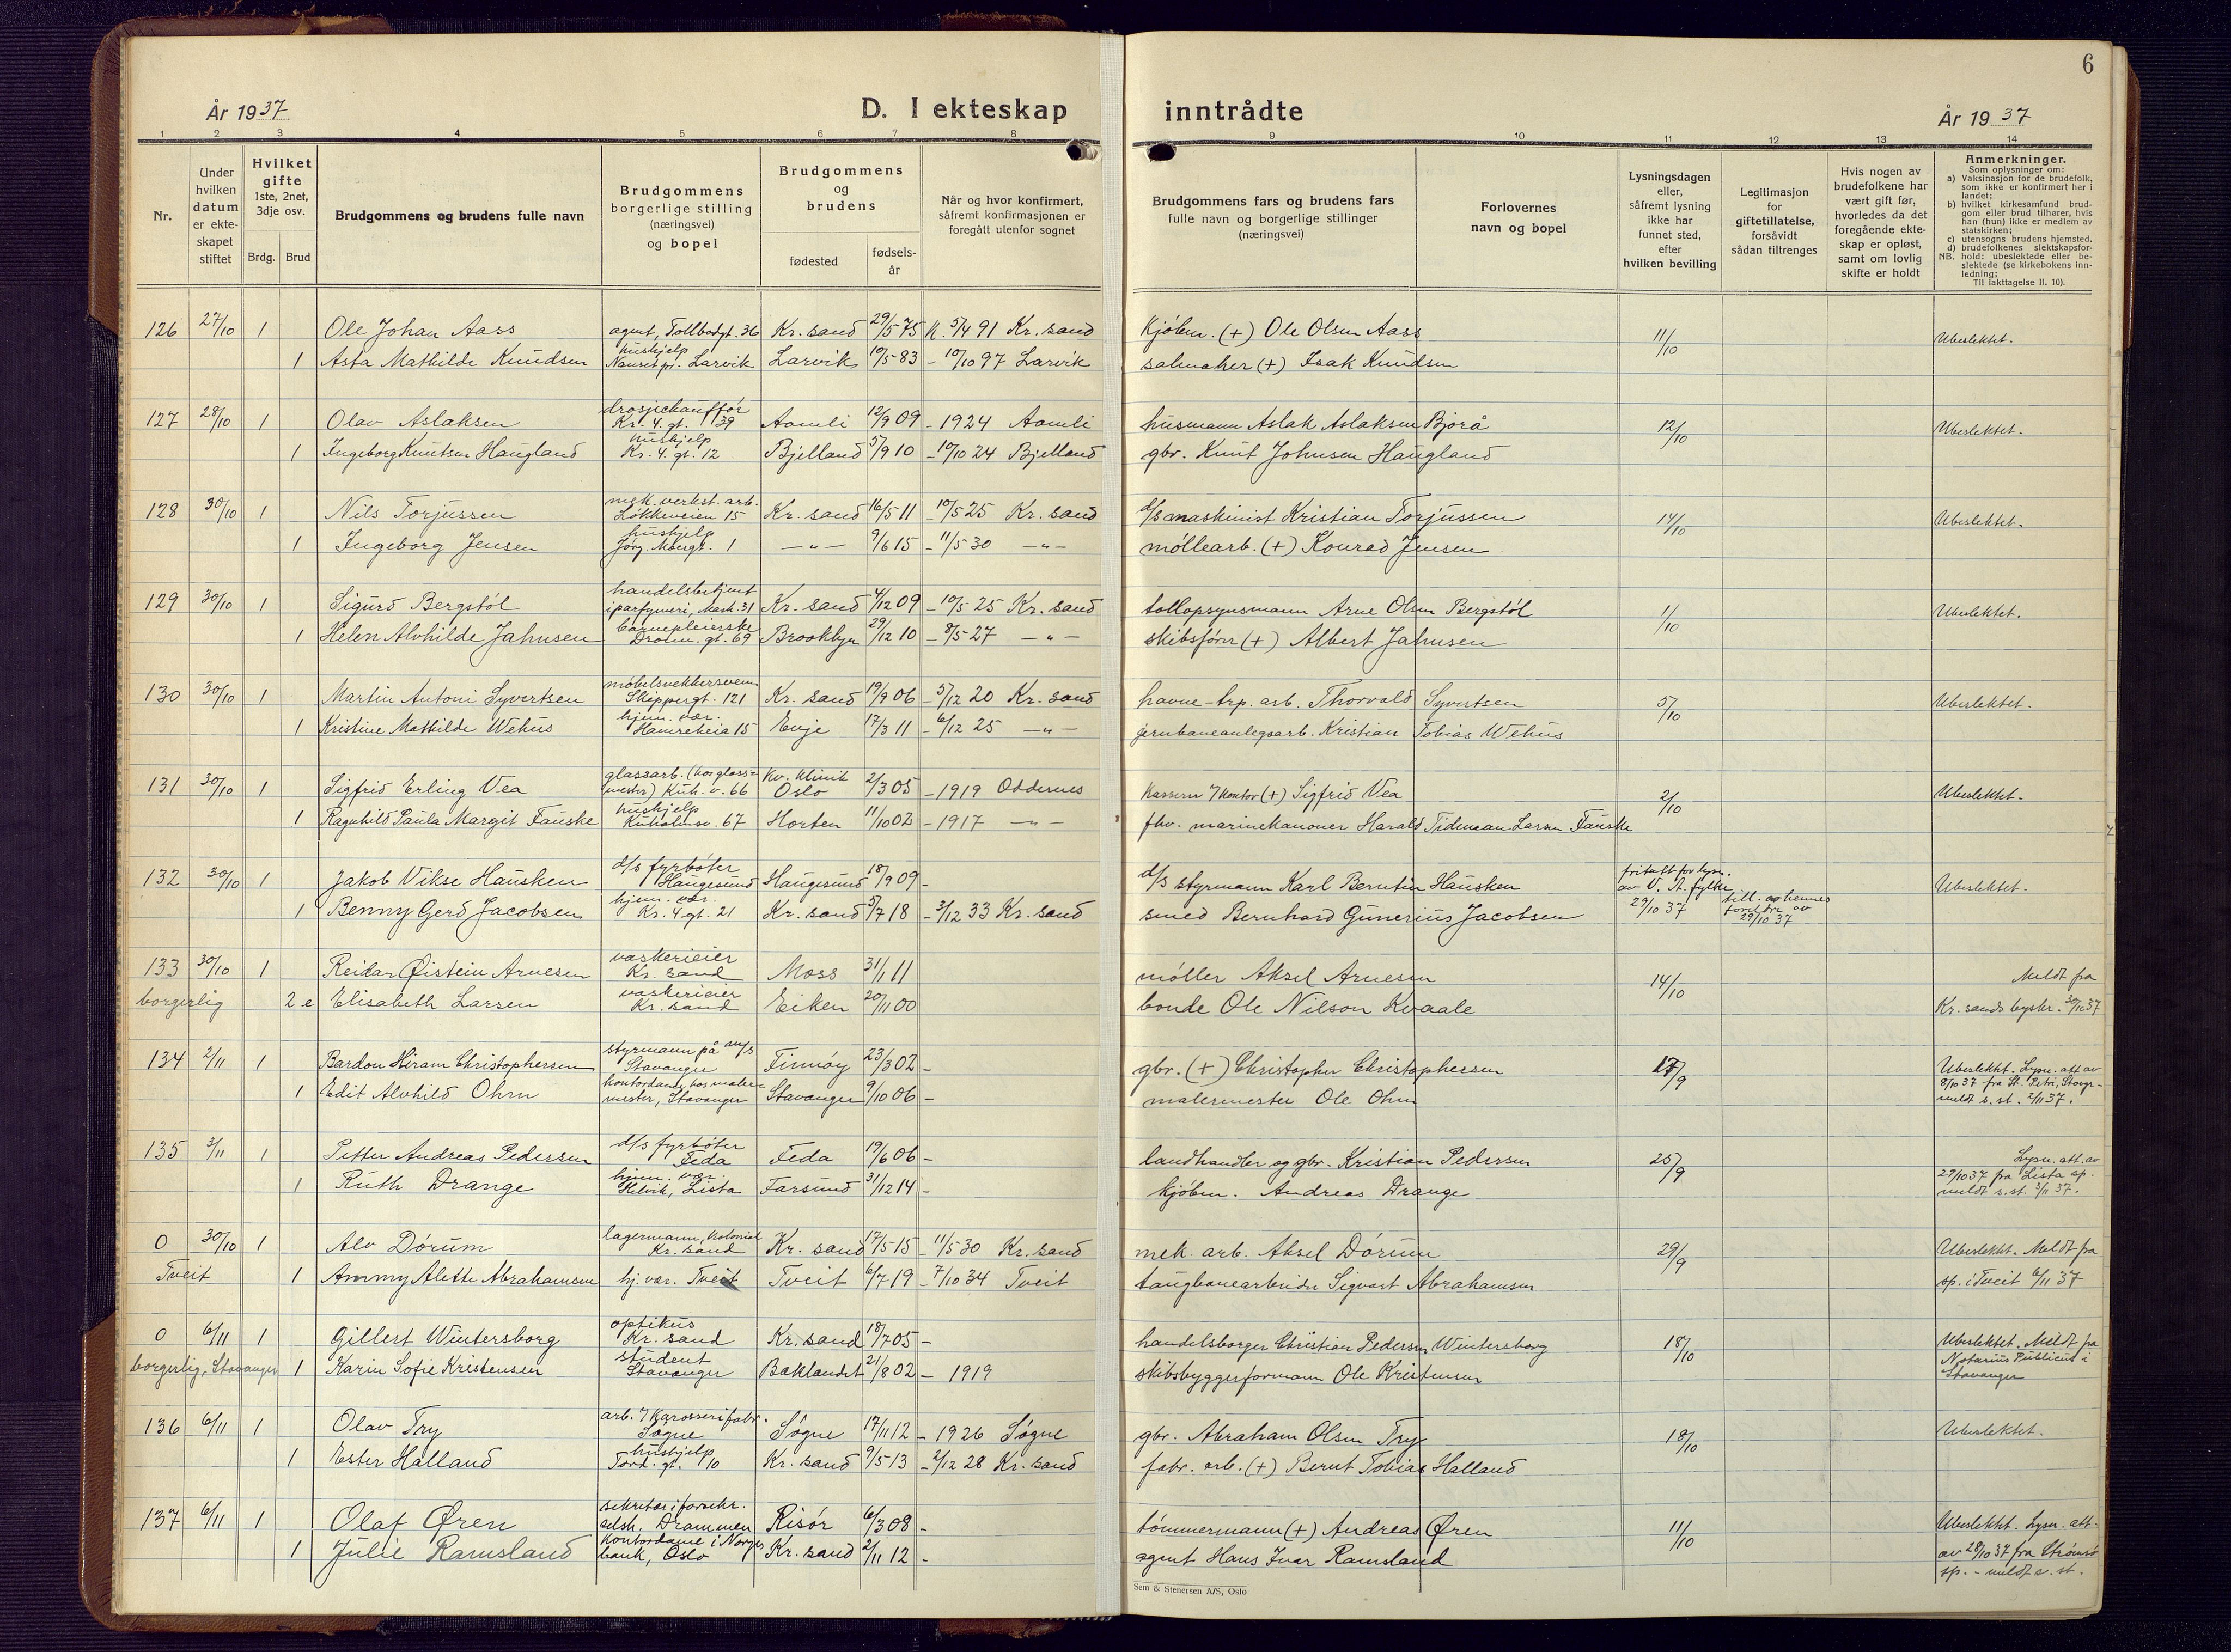 6
År 1937
D. I ekteskap inntrådte
År 1937
1 2 3 4 5 6 7 8 9 10 11 12 13 14
Nr.
Under hvilken datum er ekte-skapet stiftet
Hvilket gifte 1ste, 2net, 3dje osv.
Brdg. Brud
Brudgommens og brudens fulle navn
Brudgommens borgerlige stilling (næringsvei) og bopel
Brudgommens og brudens
fødested
fødsels-år
Når og hvor konfirmert, såfremt konfirmasjonen er foregått utenfor sognet
Brudgommens fars og brudens fars fulle navn og borgerlige stillinger (næringsvei)
Forlovernes navn og bopel
Lysningsdagen eller, såfremt lysning ikke har funnet sted, efter hvilken bevilling
Legitimasjon for giftetillatelse, forsåvidt sådan tiltrenges
Hvis nogen av brudefolkene har vært gift før, hvorledes da det foregående ekte-skap er opløst, samt om lovlig skifte er holdt
Anmerkninger.
Som oplysninger om:
a) Vaksinasjon for de brudefolk, som ikke er konfirmert her i landet;
b) hvilket kirkesamfund brud-gom eller brud tilhører, hvis han (hun) ikke er medlem av statskirken;
c) utensogns brudens hjemsted.
d) brudefolkenes slektskapsfor-
NB. hold: ubeslektede eller be-slektede (se kirkebokens inn-ledning;
Til iakttagelse II. 10).
126 27/10 1 Ole Johan Aass agent, Tollbodgt. 36 Kr. sand 29/5 75 K. 5/4 91 Kr. sand Kjøbm. (+) Ole Olsen Aass 11/10 Ubeslektet.
1 Asta Mathilde Knudsen hushjelp Nanset pr. Larvik Larvik 10/5 83 - 10/10 97 Larvik salmaker (+) Isak Knudsen
127 28/10 1 Olav Aslaksen drosjechauffør Kr. 4. gt. 39 Aamli 12/9 09 - 1924 Aamli husmann Aslak Aslaksen Bjorå 12/10 Ubeslektet.
1 Ingeborg Knutsen Haugland hushjelp Kr. 4. gt. 12 Bjelland 5/9 10 - 10/10 24 Bjelland gbr. Knut Johnsen Haugland
128 30/10 1 Nils Torjussen mek. verkst. arb. Løkkeveien 15 Kr. sand 16/5 11 - 10/5 25 Kr. sand d/s maskinist Kristian Torjussen 14/10 Ubeslektet.
1 Ingeborg Jensen hushjelp Jørg. Moesgt. 1 -"- 9/6 15 - 11/5 30 -"- møllearb. (+) Konrad Jensen
129 30/10 1 Sigurd Bergstøl handelsbetjent i parfymeri, Mark. 31 Kr. sand 4/12 09 - 10/5 25 Kr. sand tollopsynsmann Arne Olsen Bergstøl 1/10 Ubeslektet.
1 Helen Alvhilde Jahnsen barnepleierske Dronn. gt. 69 Brooklyn 29/12 10 - 8/5 27 -"- skibsfører (+) Albert Jahnsen
130 30/10 1 Martin Antoni Syvertsen møbelsnekkersvenn Skippergt. 121 Kr. sand 19/9 06 - 5/12 20 Kr. sand havne-trp. arb. Thorvald Syvertsen 5/10 Ubeslektet.
1 Kristine Mathilde Wehus hjem. vær. Hamreheia 15 Evje 17/3 11 - 6/12 25 -"- jernbaneanlegsarb. Kristian Tobias Wehus
131 30/10 1 Sigfrid Erling Vea glassarb. (hos glassmester) Kuh. v. 66 Kv. klinik Oslo 2/3 05 - 1919 Oddernes kasserer 7 kontor (+) Sigfrid Vea 2/10 Ubeslektet.
1 Ragnhild Paula Margit Fauske hushjelp Kuholmsv. 67 Horten 11/10 02 - 1917 -"- fhv. marinekanoner Harald Tideman Larsen Fauske
132 30/10 1 Jakob Vikse Hausken d/s fyrbøter Haugesund Haugesund 18/9 09 - d/s styrmann Karl Berntin Hausken fritatt for lysn. av V. A. fylke 29/10 37 till. av hennes foreldre av 29/10 37 Ubeslektet.
1 Benny Gerd Jacobsen hjem. vær. Kr. 4. gt. 21 Kr. sand 5/7 18 - 3/12 33 Kr. sand smed Bernhard Gunerius Jacobsen
133 30/10 1 Reidar Øistein Arnesen vaskerieier Kr. sand Moss 31/1 11 møller Aksel Arnesen 14/10 Meldt fra
borgerlig 2 e Elisabeth Larsen vaskerieier Kr. sand Eiken 20/11 00 bonde Ole Nilson Kvaale Kr. sands byskr. 30/10 37
134 2/11 1 Bardon Hiram Christophersen styrmann på m/s Stavanger Finnøy 23/3 02 - gbr. (+) Christopher Christophersen 17/9 Ubeslektet. Lysn. att. av 8/10 37 fra St. Petri, Stavgr - meldt s. st. 2/11 37.
1 Edit Alvhild Ohm kontordame hos malermester, Stavanger Stavanger 9/10 06 - malermester Ole Ohm
135 3/11 1 Petter Andreas Pedersen d/s fyrbøter Feda Feda 19/6 06 - landhandler og gbr. Kristian Pedersen 25/9 Lysn. att. av 29/10 37 fra Lista sp. meldt s. st. 3/11 37.
1 Ruth Drange hjem. vær. Helvik, Lista Farsund 31/12 14 - kjøbm. Andreas Drange
0 30/10 1 Alv Dørum lagermann, kolonial Kr. sand Kr. sand 17/5 15 - 11/5 30 Kr. sand mek. arb. Aksel Dørum 29/9 Ubeslekt. Meldt fra
Tveit 1 Ammy Alette Abrahamsen hj. vær. Tveit Tveit 6/7 19 - 7/10 34 Tveit taugbanearbeider Sigvart Abrahamsen sp. i Tveit 6/11 37
0 6/11 1 Gillert Wintersborg optikus Kr. sand Kr. sand 18/7 05 - handelsborger Christian Pedersen Wintersborg 18/10 Ubeslektet. Meldt fra Notarius Publicus i Stavanger
borgerlig, Stavanger 1 Karin Sofie Kristensen student Stavanger Baklandet 21/8 02 - 1919 skibsbyggerformann Ole Kristensen
136 6/11 1 Olav Try arb. 7 karosserifabr. Søgne Søgne 17/11 12 - 1926 Søgne gbr. Abraham Olsen Try 18/10 Ubeslektet.
1 Ester Halland hushjelp Tord. gt. 10 Kr. sand 9/5 13 - 2/12 28 Kr. sand fabr. arb. (+) Bernt Tobias Halland
137 6/11 1 Olaf Øren sekretær i forsikr. selsk. Drammen Risør 6/3 08 - tømmermann (+) Andreas Øren 11/10 Ubeslekt. Lysn. att. av 28/10 37 fra Strømsø sp. - meldt s. st.
1 Julie Ramsland kontordame i Norges bank, Oslo Kr. sand 2/11 12 - agent Hans Ivar Ramsland
Sem & Stenersen A/S, Oslo